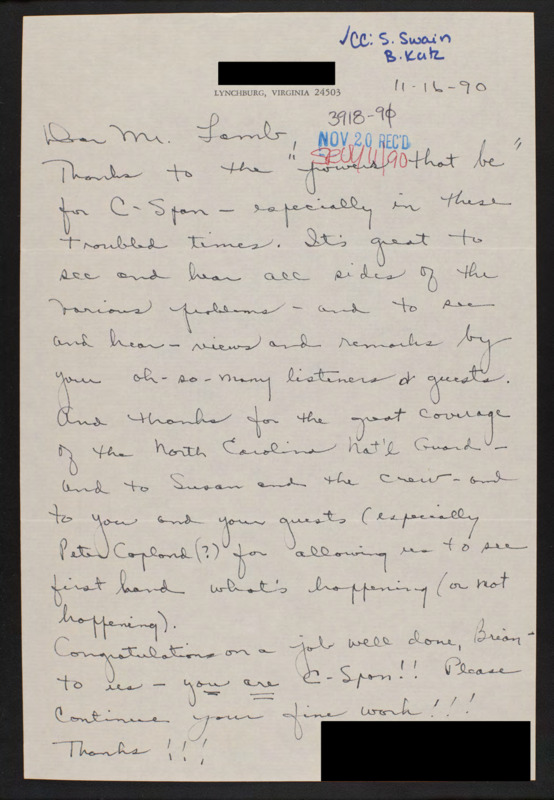 ✓CC: S. Swain
B. Katz
LYNCHBURG, VIRGINIA 24503
11-16-90
3918-90
NOV 20 REC'D
Dear Mr. Lamb,
Thanks to the "powers that be"
for C-Span – especially in these
troubled times. It's great to
see and hear all sides of the
various problems – and to see
and hear – views and remarks by
your oh-so-many listeners & guests.
And thanks for the great coverage
of the North Carolina Nat'l Guard –
and to Susan and the crew – and
to you and your guests (especially
Peter Copland(?) for allowing us to see
first hand what's happening (or not
happening).
Congratulations on a job well done, Brian –
to us – you are C-Span!! Please
continue your fine work!!!
Thanks!!!